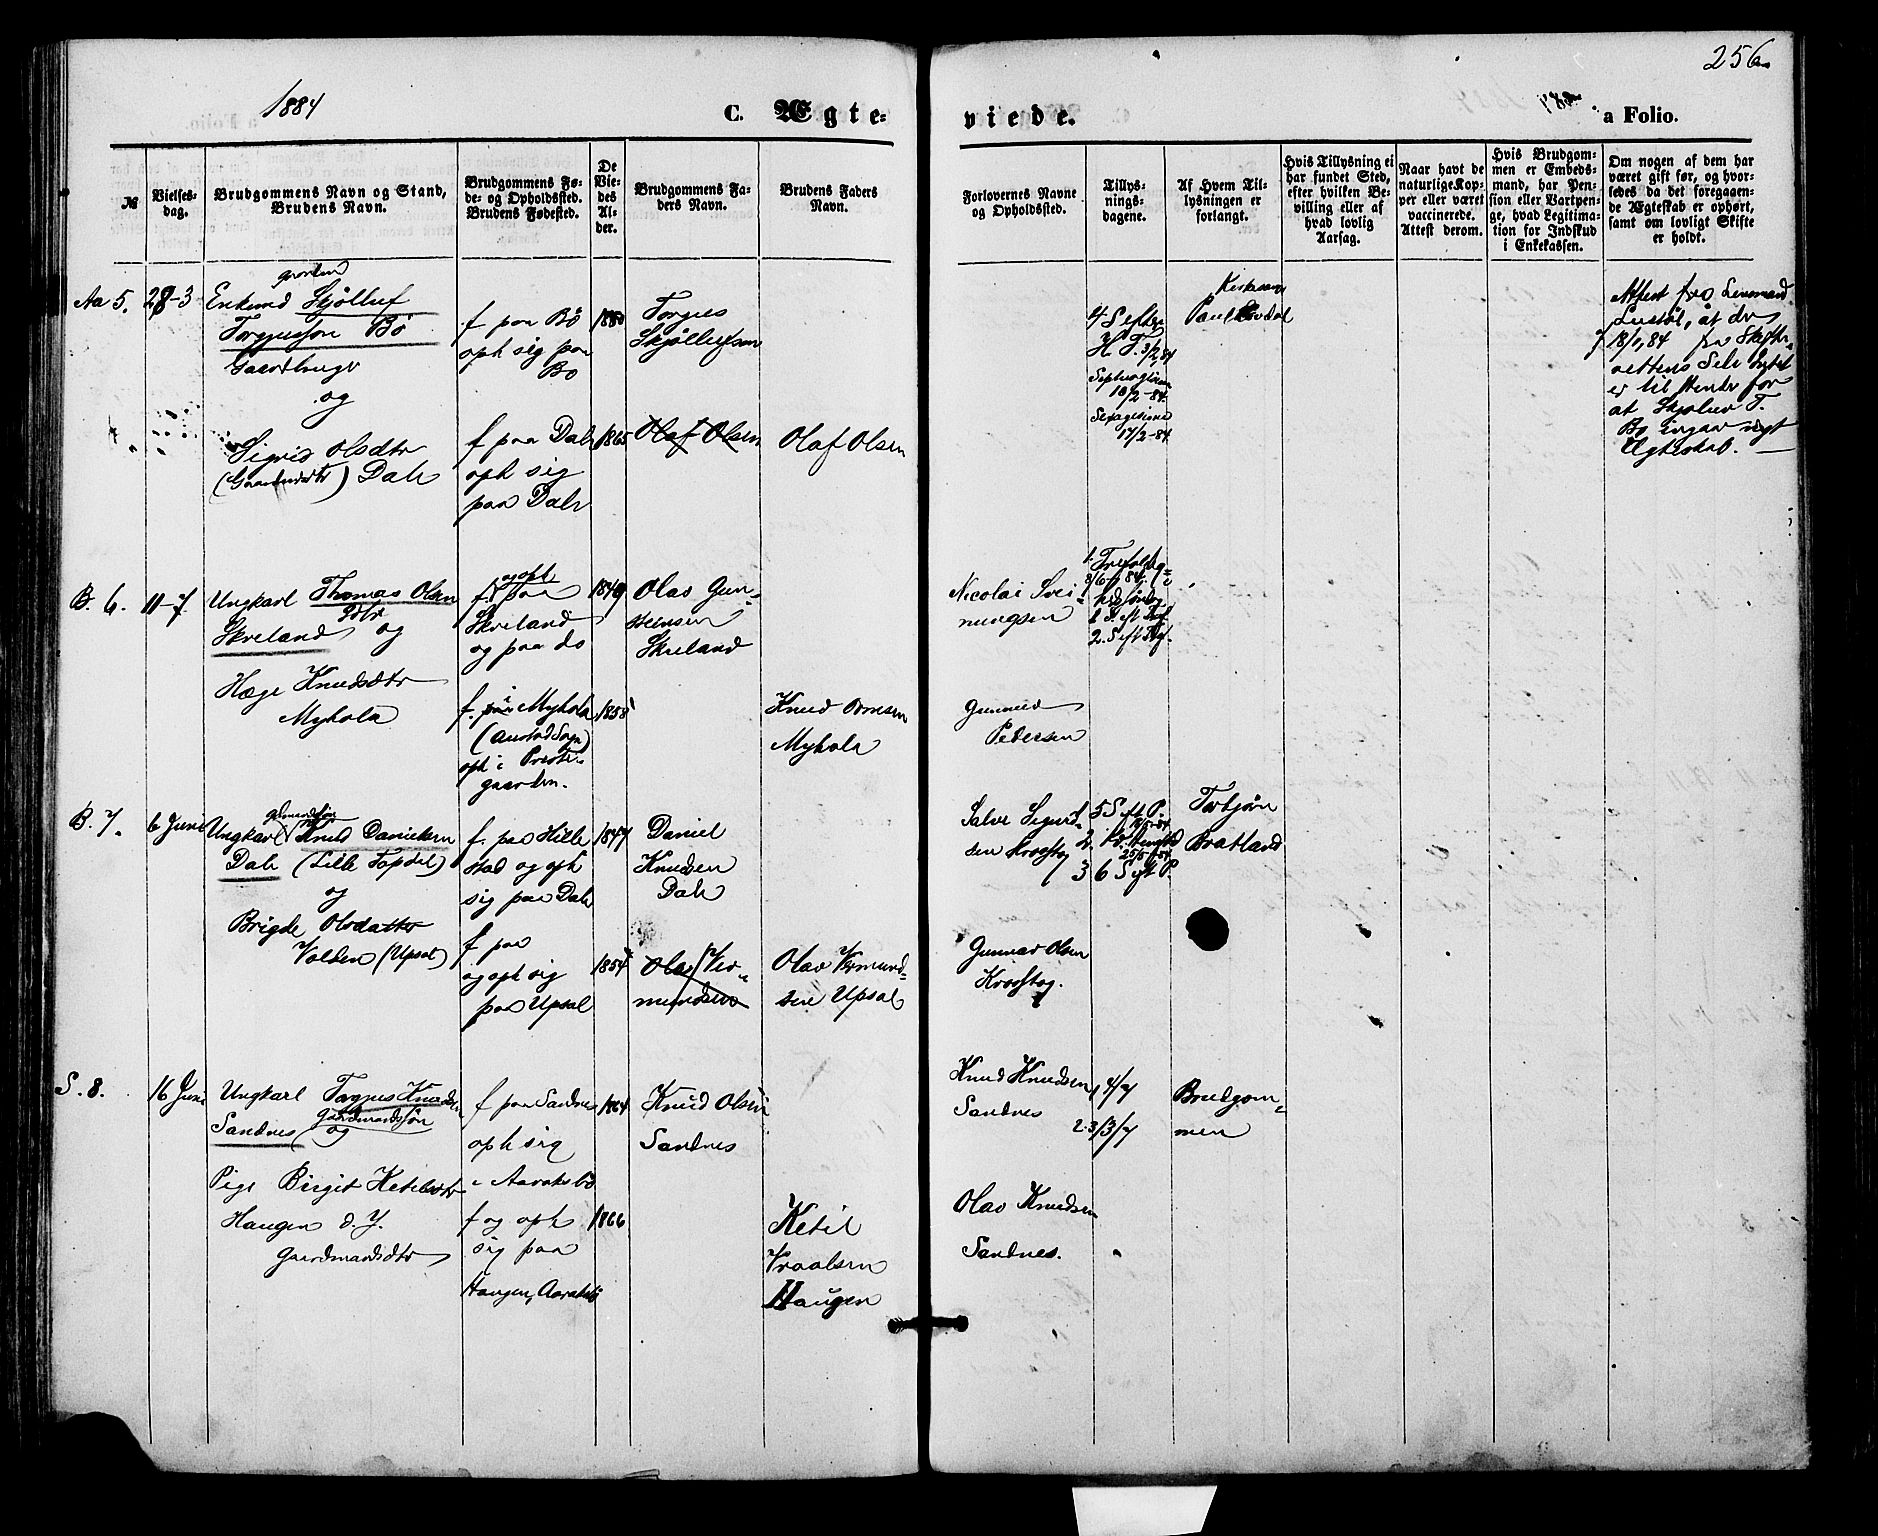 256
1884
C. Ægte-
viede.
a Folio.
№
Vielses-
dag.
Brudgommens Navn og Stand,
Brudens Navn.
Brudgommens Fø-
de- og Opholdsted.
Brudens Fødested.
De
Vie-
des
Al-
der.
Brudgommens Fa-
ders Navn.
Brudens Faders
Navn.
Forlovernes Navne
og Opholdssted.
Tillys-
nings-
dagene.
Af Hvem Til-
lysningen er
forlangt.
Hvis Tillysning ei
har fundet Sted,
efter hvilken Be-
villing eller af
hvad lovlig
Aarsag.
Naar havt de
naturlige Kop-
per eller været
vaccinerede.
Attest derom.
Hvis Brudgom-
men er Embeds-
mand, har Pen-
sion eller Vartpen-
ge, hvad Legitima-
tion for Indskud
i Enkekassen.
Om nogen af dem har
været gift før, og hvor-
ledes da det foregaaen-
de Ægteskab er ophørt,
samt om lovligt Skifte
er holdt.
Aa 5.
28-3
Enkmd Skjølluf
Torgjussøn Bø
Gaardbruger
og
Sigrid Olsdtr
Dale
f paa Bø
oph sig paa
Bø
f paa Dale
oph sig
paa Dale
1865
Torgus
Skjøllufsen
Olaf Olsen
Olaf Olsen
4 S efter
H T. 3/2, 84
10/2-84.
17/2-84
Attest fra Lensmand
at dr
18/1, 84
er til Hinder for
at Skjøluv T.
Bø ingaar nyt
Egteskab.
B. 6.
11-7
Ungkarl Thomas Olsen
Skreland og
Hæge Knudsdtr
Myhola
og oph
f. paa
Skreland
og paa do
f. i Myhola
(Austad Sogn)
oph i Preste-
gaarden.
1849
1858
Olav Gun-
steinsen
Skreland
Knud
Myhola
Nicolai Svei-
nungsen
Gunnuld
Pedersen
2. S eft Tref.
B. 7.
6 Juni
gdmandssøn
Ungkarl Knud Danielsen
Dale (Lille Topdal)
og
Brigde Olsdatter
Valden (Upsal)
f. paa Hille
stad og oph
sig paa Dale
f paa
og oph sig
paa Upsal
1847
1854
Daniel
Knudsen
Dale
Olav Ver-
mundsen
Olav Vermund-
sen Upsal
Salve Sigurd-
sen
Gunnar Olsen
5 S eft P.
25/5
3 6 S eft P.
Torbjørn
Bratland
S. 8.
16 Juni
Ungkarl Torgjus Knudsen
Gaardmandssøn
Sandnes og
Pige Birgit Ketilsdtr
Haugen d. Y.
Gaardmandsdtr
f paa Sandnes
oph sig
i Aaraksbø
f og oph
sig paa
Haugen, Aaraksbø
1864
1866
Knud Olsen
Sandnes
Ketil
Vraalsen
Haugen
Knud Knudsen
Sandnes
Olav Knudsen
Sandnes.
Brudgom-
men